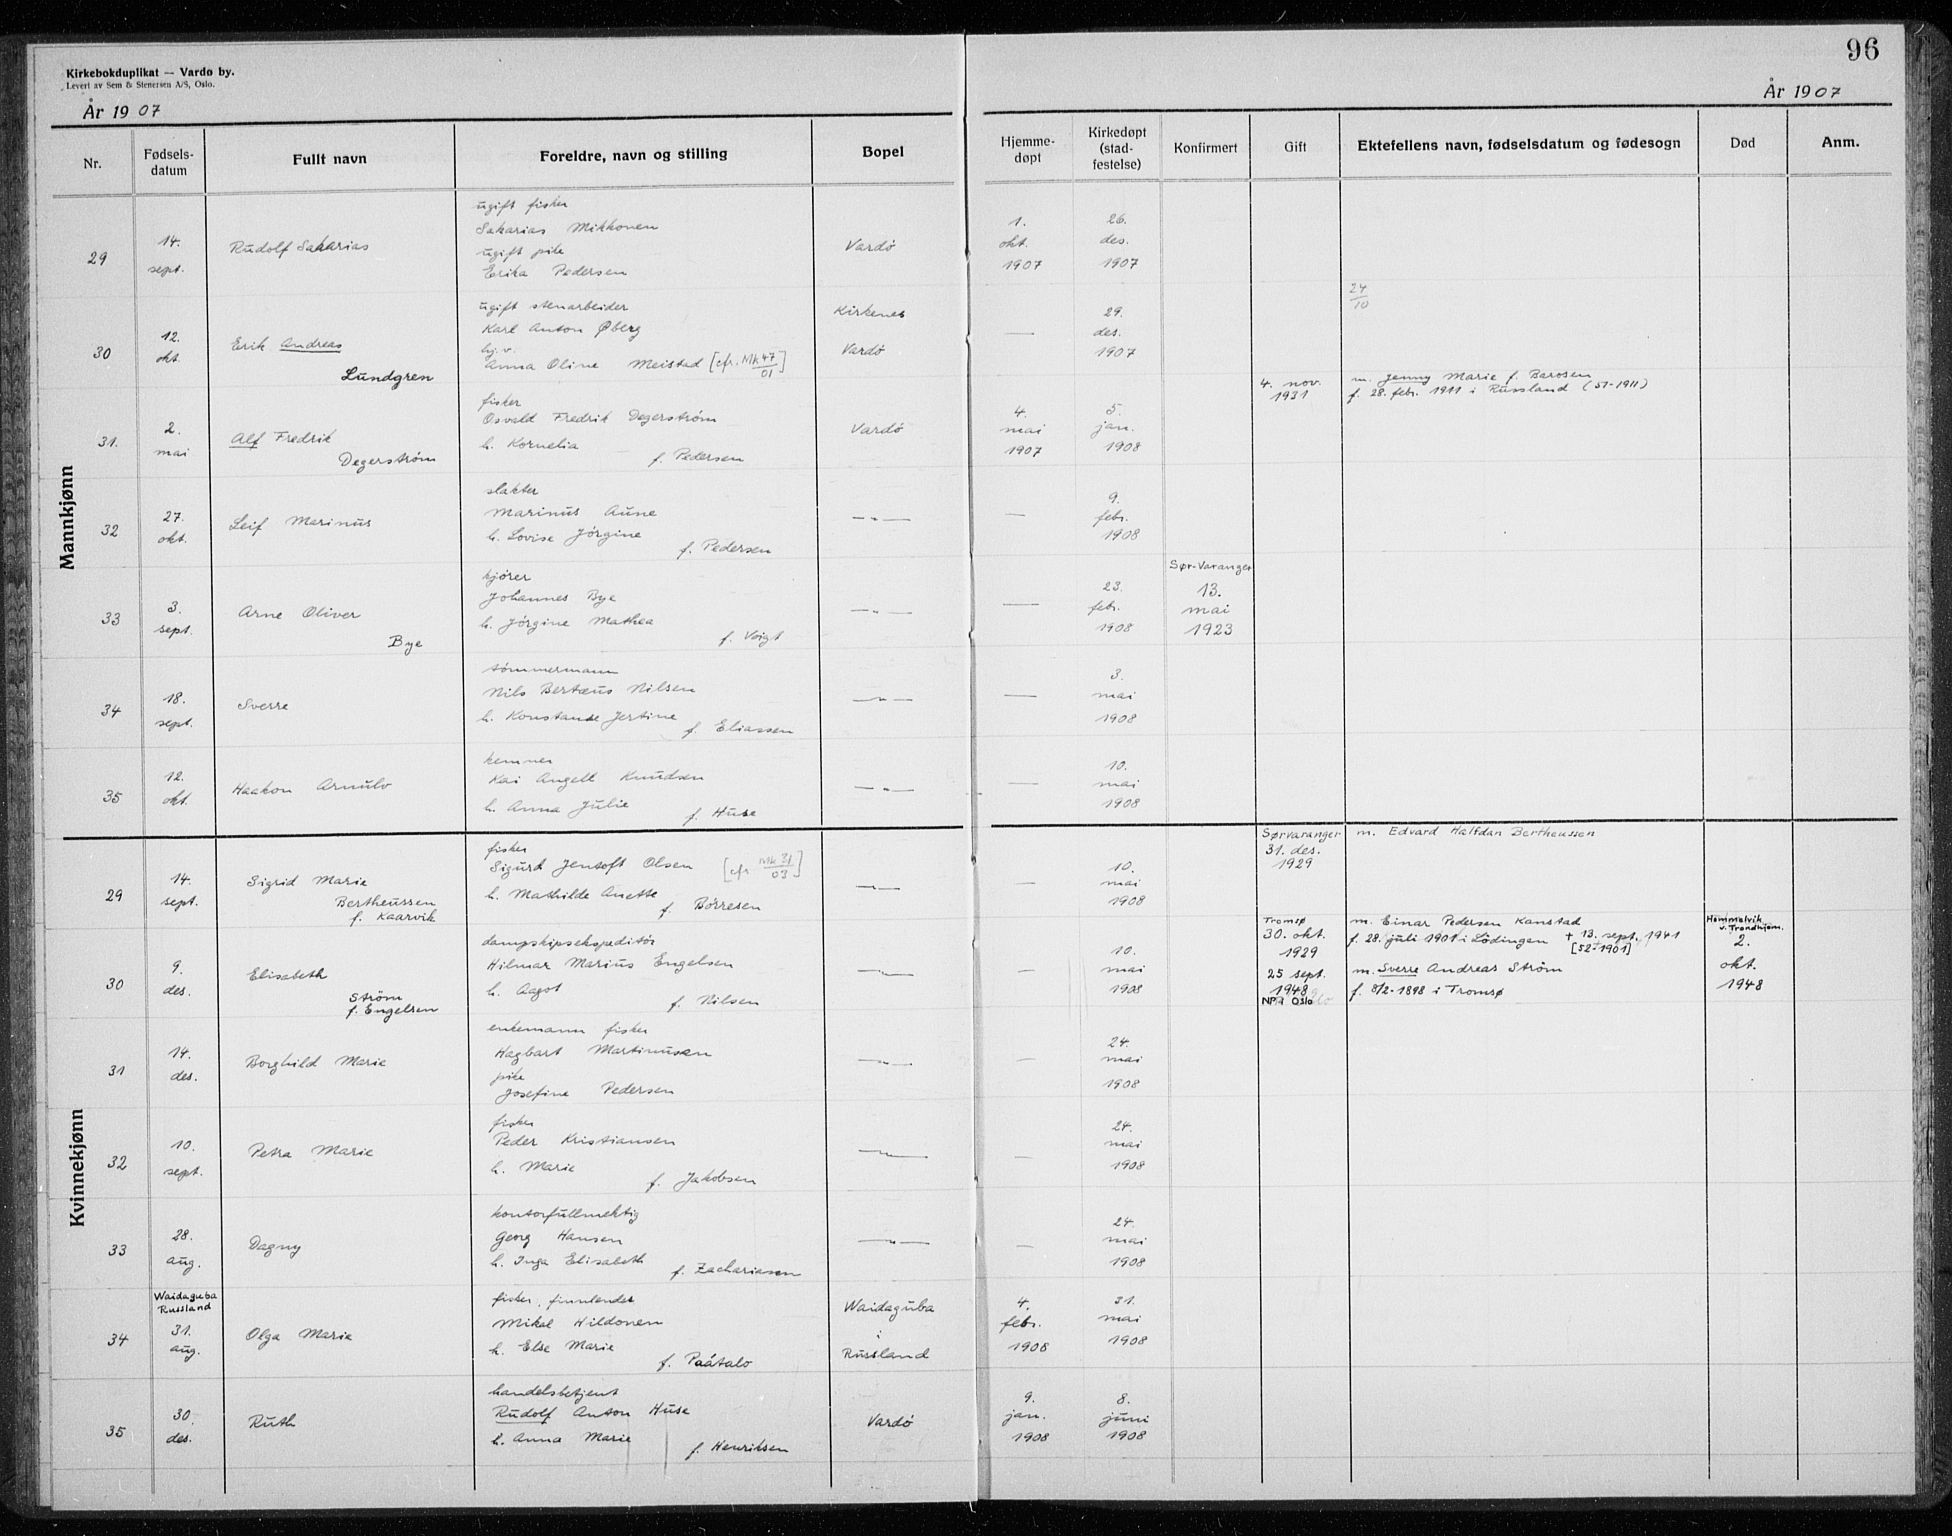 96
Kirkebokduplikat — Vardø by.
Levert av Sem & Stenersen A/S, Oslo.
År 1907
År 1907
Nr. Fødselsdatum Fullt navn Foreldre, navn og stilling Bopel Hjemmedøpt Kirkedøpt (stadfestelse) Konfirmert Gift Ektefellens navn, fødselsdatum og fødesogn Død Anm.
Mannkjønn
29 14. sept. Rudolf Sakarias
ugift fisker
Sakarias Mikkonen
ugift pike
Erika Pedersen
Vardö
1. okt. 1907
26. des. 1907
30 12. okt. Erik Andreas
Lundgren
ugift stenarbeider
Karl Anton Øberg
hj.v.
Anna Oline Meistad [cfr. Mk 47/01]
Kirkenes
Vardö
—
29. des. 1907
24/10
31. 2. mai Alf Fredrik
Degerström
fisker
Osvald Fredrik Degerström
h. Kornelia
f. Pedersen
Vardö
4. mai 1907
5. jan. 1908
4. nov. 1931
m. Jenny Marie f. Barosen
f. 28. febr. 1911 i Russland (51-1911)
32 27. okt. Leif Marinus
slakter
Marinus Aune
h. Lovise Jörgine
f. Pedersen
—"—
—
9. febr. 1908
33 3. sept. Arne Oliver
Bye
kjører
Johannes Bye
h. Jörgine Mathea
f. Voigt
—"—
—
23. febr. 1908
Sør-Varanger
13. mai 1923
34 18. sept. Sverre
tömmermann
Nils Berteus Nilsen
h. Konstanse Jertine
f. Eliassen
—"—
—
3. mai 1908
35 12. okt. Haakon Arnulv
kemner
Kai Angell Knudsen
h. Anna Julie
f. Huse
—"—
—
10. mai 1908
Kvinnekjønn
29 14. sept. Sigrid Marie
Bertheussen
f. Kaarvik
fisker
Sigurd Jentoft Olsen [cfr Mk 31/03]
h. Mathilde Anette
f. Börresen
—"—
—
10. mai 1908
Sørvaranger
31. des. 1929
m. Edvard Halfdan Bertheussen
30 9. des. Elisabeth
Ström
f. Engelsen
dampskipsekspeditör
Hilmar Marius Engelsen
h. Aagot
f. Nilsen
—"—
—
10. mai 1908
Tromsø
30. okt. 1929
m. Einar Pedersen Kanstad
f. 28. juli 1901 i Lödingen + 13. sept. 1941
[52-1901]
25 sept. 1948
NPA Oslo
m. Sverre Andreas Ström
f. 8/2-1898 i Tromsø
Hommelvik
v. Trondhjem.
2. okt. 1948
31 14. des. Borghild Marie
enkemann fisker
Hagbart Martinusen
pike
Josefine Pedersen
—"—
—
24. mai 1908
32 10. sept. Petra Marie
fisker
Peder Kristiansen
h. Marie
f. Jakobsen
—"—
—
24. mai 1908
33 28. aug. Dagny
kontorfullmektig
Georg Hansen
h. Inga Elisabeth
f. Zachariasen
—"—
—
24. mai 1908
34 Waidaguba
Russland
31. aug. Olga Marie
fisker, finnlender
Mikal Hildonen
h. Else Marie
f. Paátalo
Waidaguba
i
Russland
4. febr. 1908
31. mai 1908
35 30. des. Ruth
handelsbetjent
Rudolf Anton Huse
h. Anna Marie
f. Henriksen
Vardö
9. jan. 1908
8. juni 1908